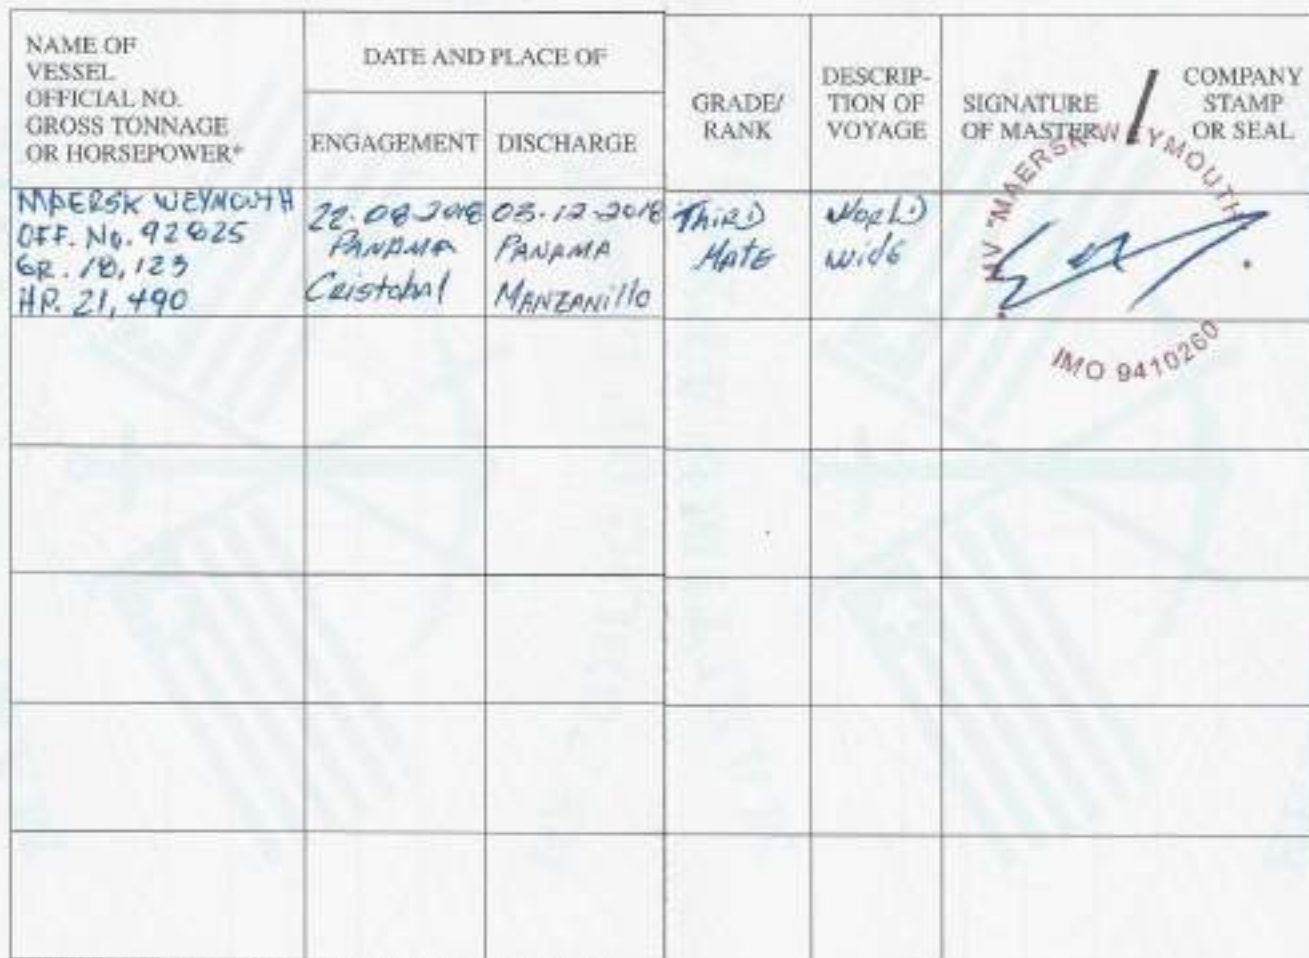 NAME OF
VESSEL
OFFICIAL NO.
GROSS TONNAGE
OR HORSEPOWER*
DATE AND PLACE OF
ENGAGEMENT
DISCHARGE
GRADE/
RANK
DESCRIP-
TION OF
VOYAGE
SIGNATURE
OF MASTER
/
COMPANY
STAMP
OR SEAL
MAERSK WEYMOUTH
OFF. No. 92825
GR. 18,123
HP. 21,490
22.08.2018
PANAMA
Cristobal
03.12.2018
PANAMA
MANZANillo
THiRD
MATE
WorLD
wide
MV "MAERSK WEYMOUTH"
IMO 9410260